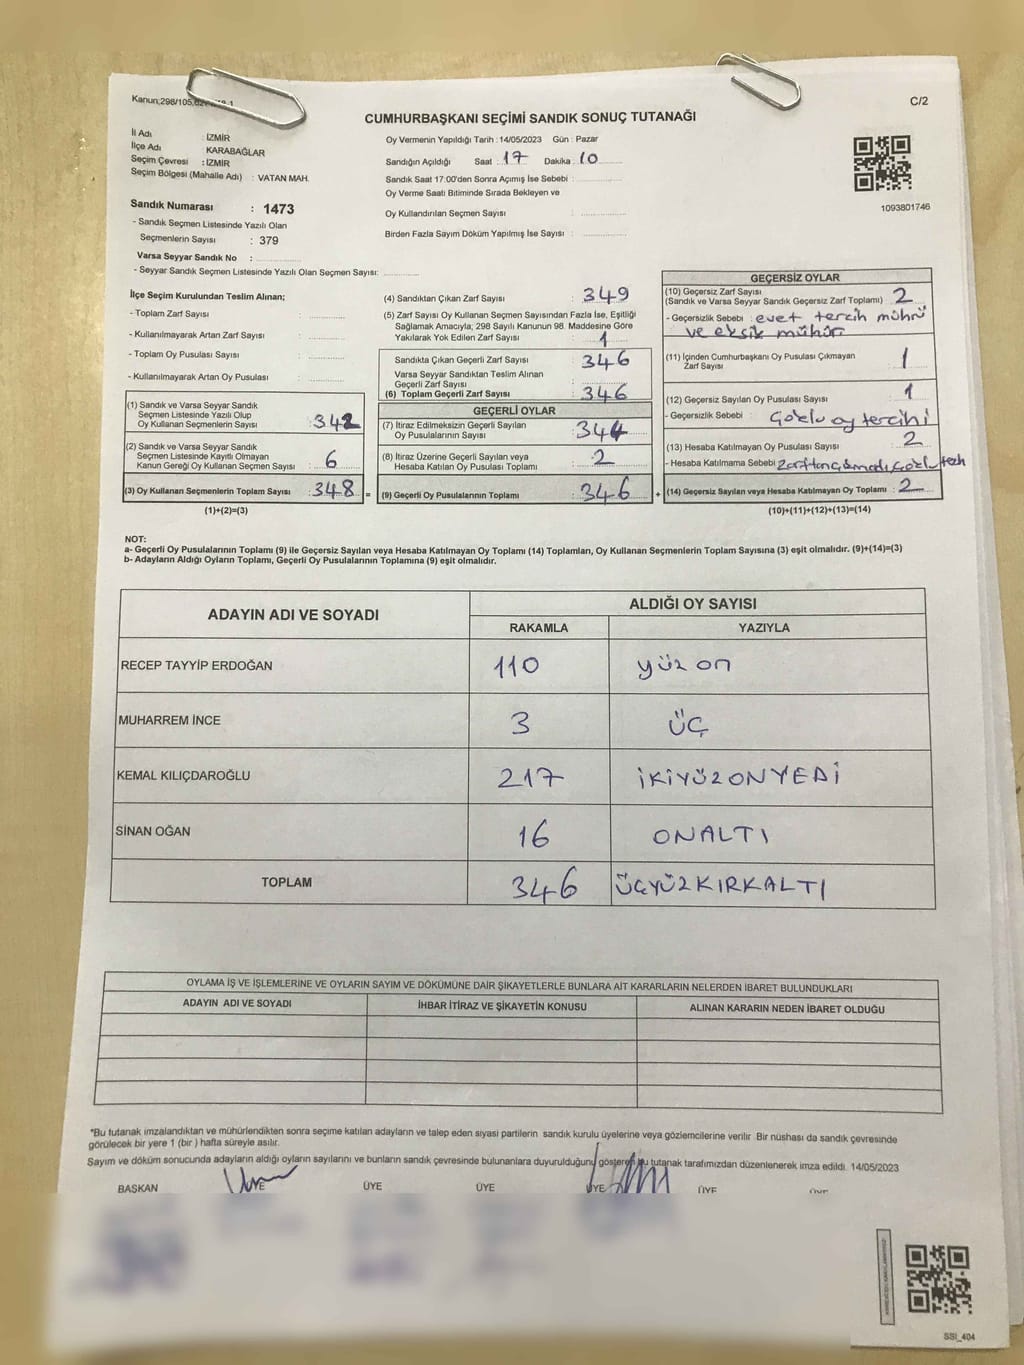 Kanun;298/105,
C/2
CUMHURBAŞKANI SEÇİMİ SANDIK SONUÇ TUTANAĞI
İl Adı : İZMİR
İlçe Adı : KARABAĞLAR
Seçim Çevresi : İZMİR
Seçim Bölgesi (Mahalle Adı) : VATAN MAH.
Sandık Numarası : 1473
- Sandık Seçmen Listesinde Yazılı Olan
Seçmenlerin Sayısı : 379
Varsa Seyyar Sandık No :
- Seyyar Sandık Seçmen Listesinde Yazılı Olan Seçmen Sayısı:
Oy Vermenin Yapıldığı Tarih : 14/05/2023 Gün : Pazar
Sandığın Açıldığı Saat : 17 Dakika : 10
Sandık Saat 17.00'den Sonra Açımış İse Sebebi :
Oy Verme Saati Bitiminde Sırada Bekleyen ve
Oy Kullandırılan Seçmen Sayısı :
Birden Fazla Sayım Döküm Yapılmış İse Sayısı :
1093801746
İlçe Seçim Kurulundan Teslim Alınan;
- Toplam Zarf Sayısı :
- Kullanılmayarak Artan Zarf Sayısı :
- Toplam Oy Pusulası Sayısı :
- Kullanılmayarak Artan Oy Pusulası :
(1) Sandık ve Varsa Seyyar Sandık
Seçmen Listesinde Yazılı Olup
Oy Kullanan Seçmenlerin Sayısı : 342
(2) Sandık ve Varsa Seyyar Sandık
Seçmen Listesinde Kayıtlı Olmayan
Kanun Gereği Oy Kullanan Seçmen Sayısı : 6
(3) Oy Kullanan Seçmenlerin Toplam Sayısı : 348 =
(1)+(2)=(3)
(4) Sandıktan Çıkan Zarf Sayısı : 349
(5) Zarf Sayısı Oy Kullanan Seçmen Sayısından Fazla İse, Eşitliği
Sağlamak Amacıyla; 298 Sayılı Kanunun 98. Maddesine Göre
Yakılarak Yok Edilen Zarf Sayısı : 1
Sandıkta Çıkan Geçerli Zarf Sayısı : 346
Varsa Seyyar Sandıktan Teslim Alınan
Geçerli Zarf Sayısı :
(6) Toplam Geçerli Zarf Sayısı : 346
GEÇERLİ OYLAR
(7) İtiraz Edilmeksizin Geçerli Sayılan
Oy Pusulalarının Sayısı : 344
(8) İtiraz Üzerine Geçerli Sayılan veya
Hesaba Katılan Oy Pusulası Toplamı : 2
(9) Geçerli Oy Pusulalarının Toplamı : 346 +
GEÇERSİZ OYLAR
(10) Geçersiz Zarf Sayısı
(Sandık ve Varsa Seyyar Sandık Geçersiz Zarf Toplamı) : 2
- Geçersizlik Sebebi : evet tercih mührü
ve eksik mühür
(11) İçinden Cumhurbaşkanı Oy Pusulası Çıkmayan
Zarf Sayısı : 1
(12) Geçersiz Sayılan Oy Pusulası Sayısı : 1
- Geçersizlik Sebebi : Çoklu oy tercihi
(13) Hesaba Katılmayan Oy Pusulası Sayısı : 2
- Hesaba Katılmama Sebebi : zarftan çıkmadı, çoklu terh
(14) Geçersiz Sayılan veya Hesaba Katılmayan Oy Toplamı : 2
(10)+(11)+(12)+(13)=(14)
NOT:
a- Geçerli Oy Pusulalarının Toplamı (9) ile Geçersiz Sayılan veya Hesaba Katılmayan Oy Toplamı (14) Toplamları, Oy Kullanan Seçmenlerin Toplam Sayısına (3) eşit olmalıdır. (9)+(14)=(3)
b- Adayların Aldığı Oyların Toplamı, Geçerli Oy Pusulalarının Toplamına (9) eşit olmalıdır.
ADAYIN ADI VE SOYADI ALDIĞI OY SAYISI
RAKAMLA YAZIYLA
RECEP TAYYİP ERDOĞAN 110 yüz on
MUHARREM İNCE 3 ÜÇ
KEMAL KILIÇDAROĞLU 217 İKİYÜZONYEDİ
SİNAN OĞAN 16 ONALTI
TOPLAM 346 ÜÇYÜZKIRKALTI
OYLAMA İŞ VE İŞLEMLERİNE VE OYLARIN SAYIM VE DÖKÜMÜNE DAİR ŞİKAYETLERLE BUNLARA AİT KARARLARIN NELERDEN İBARET BULUNDUKLARI
ADAYIN ADI VE SOYADI İHBAR İTİRAZ VE ŞİKAYETİN KONUSU ALINAN KARARIN NEDEN İBARET OLDUĞU
*Bu tutanak imzalandıktan ve mühürlendikten sonra seçime katılan adayların ve talep eden siyasi partilerin sandık kurulu üyelerine veya gözlemcilerine verilir. Bir nüshası da sandık çevresinde
görülecek bir yere 1 (bir ) hafta süreyle asılır.
Sayım ve döküm sonucunda adayların aldığı oyların sayılarını ve bunların sandık çevresinde bulunanlara duyurulduğunu gösteren bu tutanak tarafımızdan düzenlenerek imza edildi. 14/05/2023
BAŞKAN ÜYE ÜYE ÜYE ÜYE ÜYE ÜYE
SSI_404